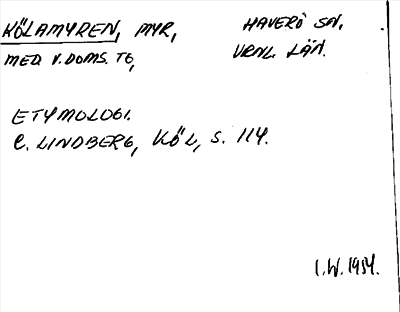 KÖLAMYREN, MYR, HAVERÖ SN,
MED V. DOMS. TG, VRNL. LÄN.
ETYMOLOGI.
C. LINDBERG, KÖL, S. 114.
I.W. 1954.